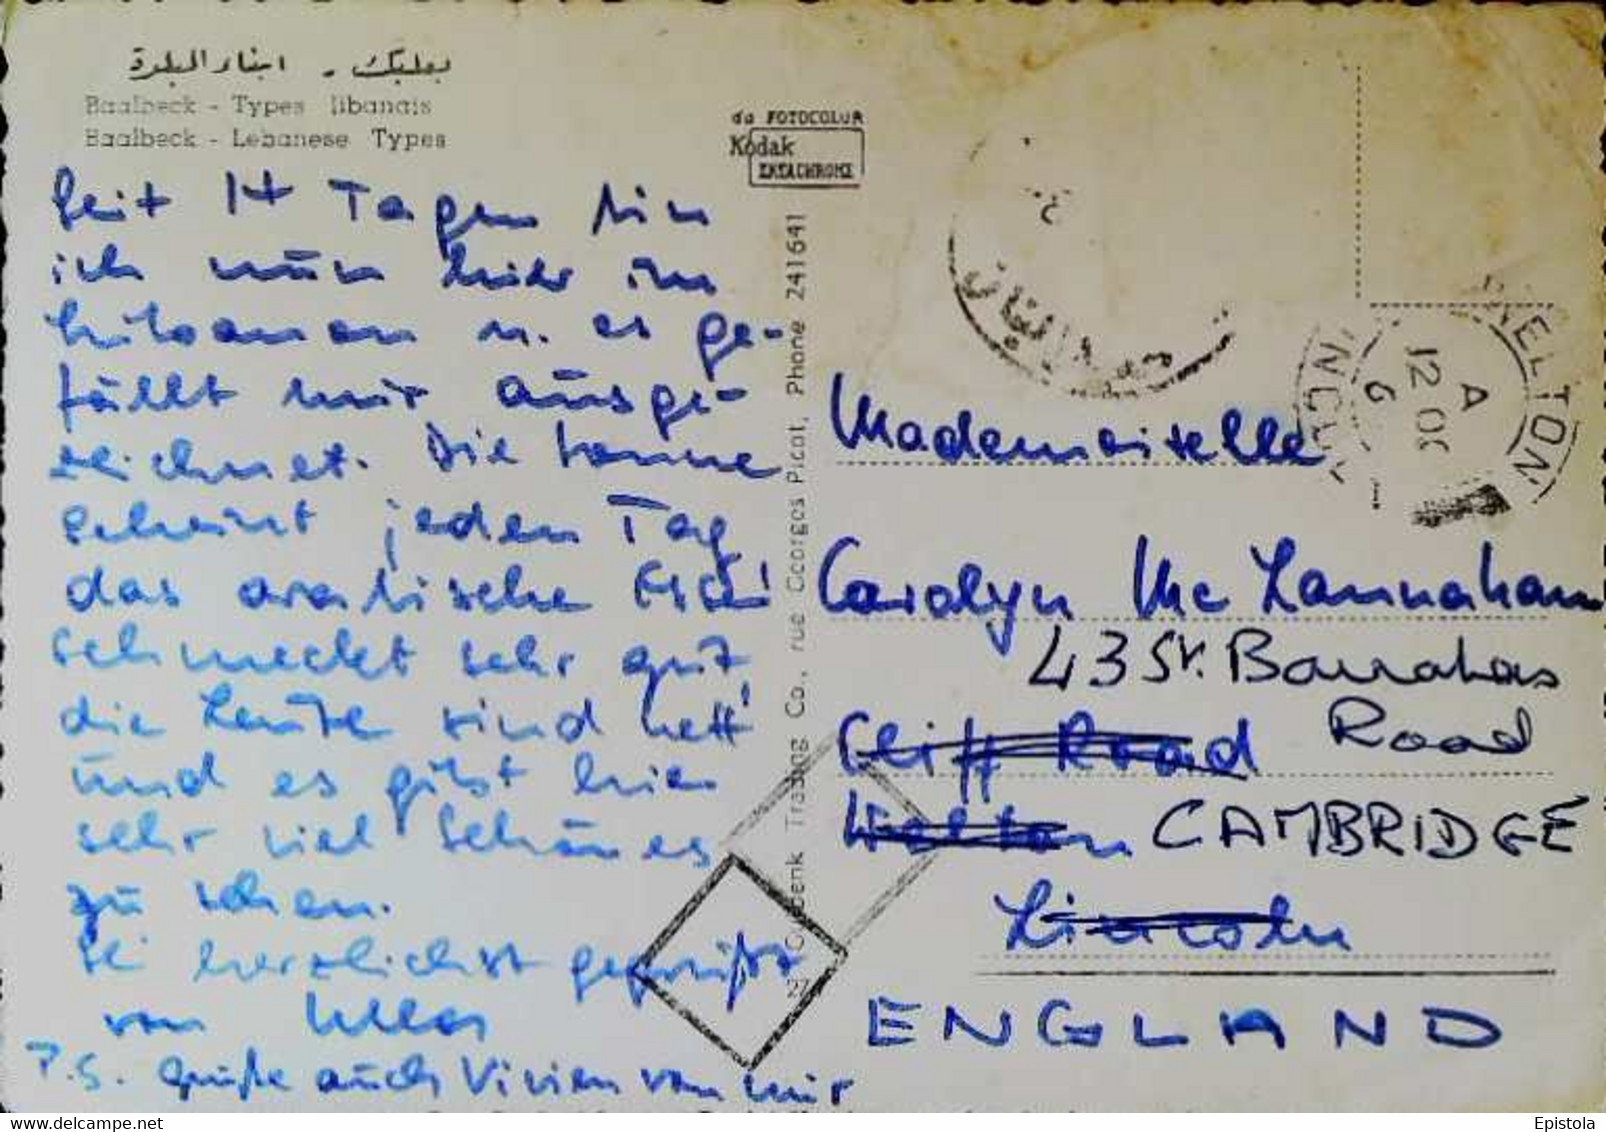 بعلبك - ابناء البلدة
Baalbeck - Types libanais
Baalbeck - Lebanese Types
da FOTOCOLOR
Kodak
EKTACHROME
Seit 14 Tagen bin
ich nun hier im
Libanon u. es ge-
fällt mir ausge-
zeichnet. Die Sonne
scheint jeden Tag,
das arabische Essen
schmeckt sehr gut,
die Leute sind nett
und es gibt hier
sehr viel Schönes
zu sehen.
Sei herzlichst gegrüßt
von Ulla
P.S. Grüße auch Vivien von mir
Trading Co., rue Georges Picot, Phone 241641
27
صيدا لبنان
WELTON
LINCOLN
A
12 OC
6
Mademoiselle
Carolyn Mc Lannaham
43 St. Barnabas
Road
Cliff Road
Welton
CAMBRIDGE
Lincoln
ENGLAND
Epistola